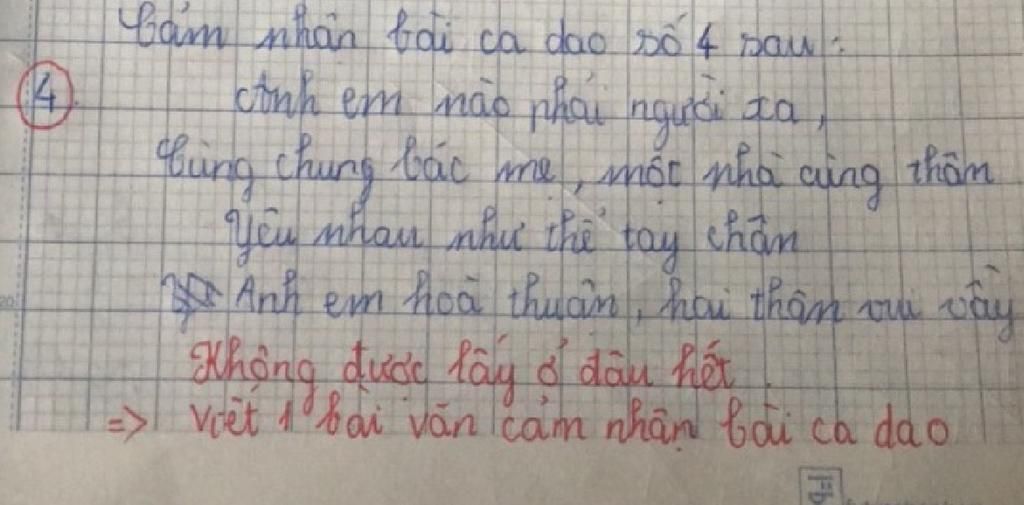 Cảm nhận bài ca dao số 4 sau:
4. Anh em nào phải người xa,
Cùng chung bác mẹ, một nhà cùng thân
Yêu nhau như thể tay chân
Anh em hoà thuận, hai thân vui vầy
Không được lấy ở đâu hết.
=> Viết 1 bài văn cảm nhận bài ca dao